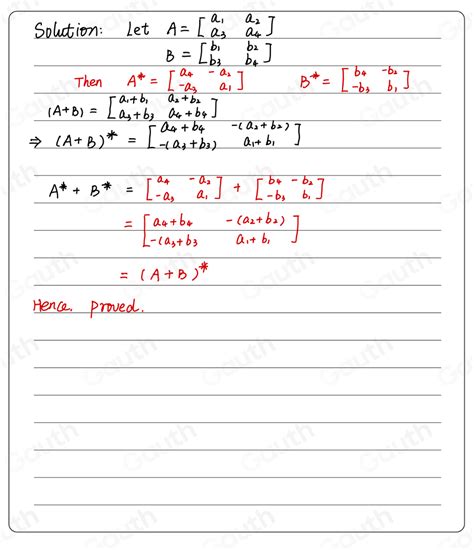 Solution: Let A = [a₁ a₂
a₃ a₄]
B = [b₁ b₂
b₃ b₄]
Then A* = [a₄ -a₂
-a₃ a₁] B* = [b₄ -b₂
-b₃ b₁]
(A+B) = [a₁+b₁ a₂+b₂
a₃+b₃ a₄+b₄]
⇒ (A+B)* = [a₄+b₄ -(a₂+b₂)
-(a₃+b₃) a₁+b₁]
A* + B* = [a₄ -a₂
-a₃ a₁] + [b₄ -b₂
-b₃ b₁]
= [a₄+b₄ -(a₂+b₂)
-(a₃+b₃ a₁+b₁]
= (A+B)*
Hence. proved.
Gauth